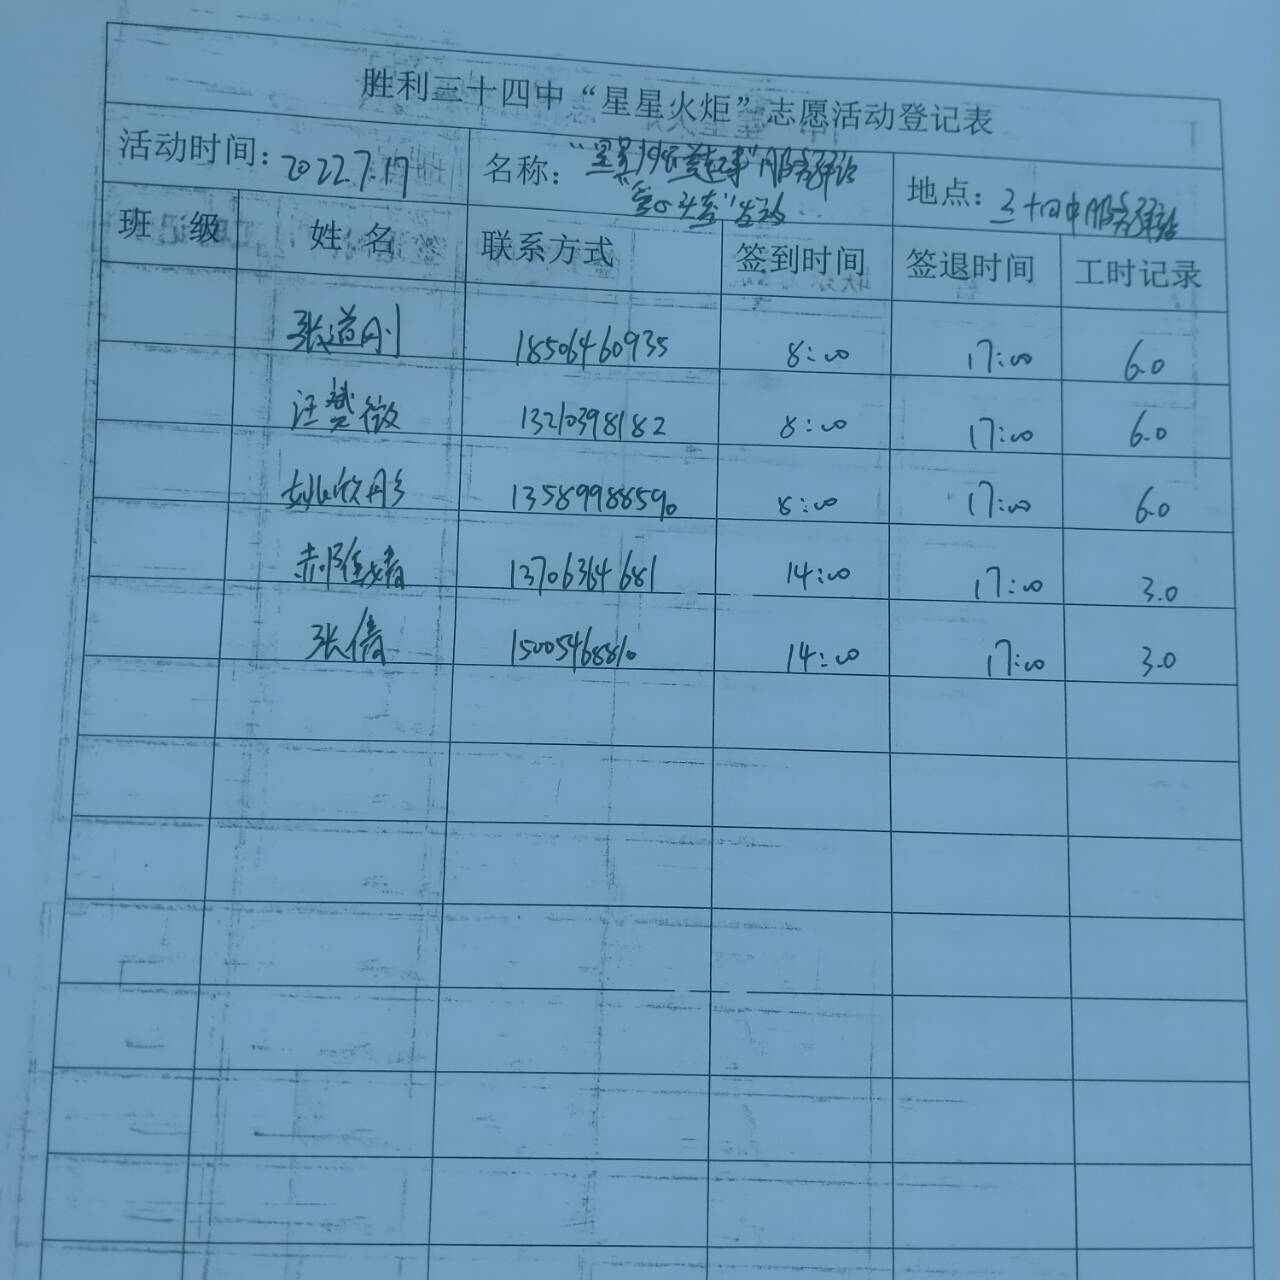 胜利三十四中“星星火炬”志愿活动登记表
活动时间： 2022.7.17 名称： 地点： 三十四中服务驿站
活动
班 级 姓 名 联系方式 签到时间 签退时间 工时记录
张道刚 18506460935 8:00 17:00 6.0
汪赞微 13210398182 8:00 17:00 6.0
姚欣彤 13589988590 8:00 17:00 6.0
13706364681 14:00 17:00 3.0
张倩 15005468810 14:00 17:00 3.0